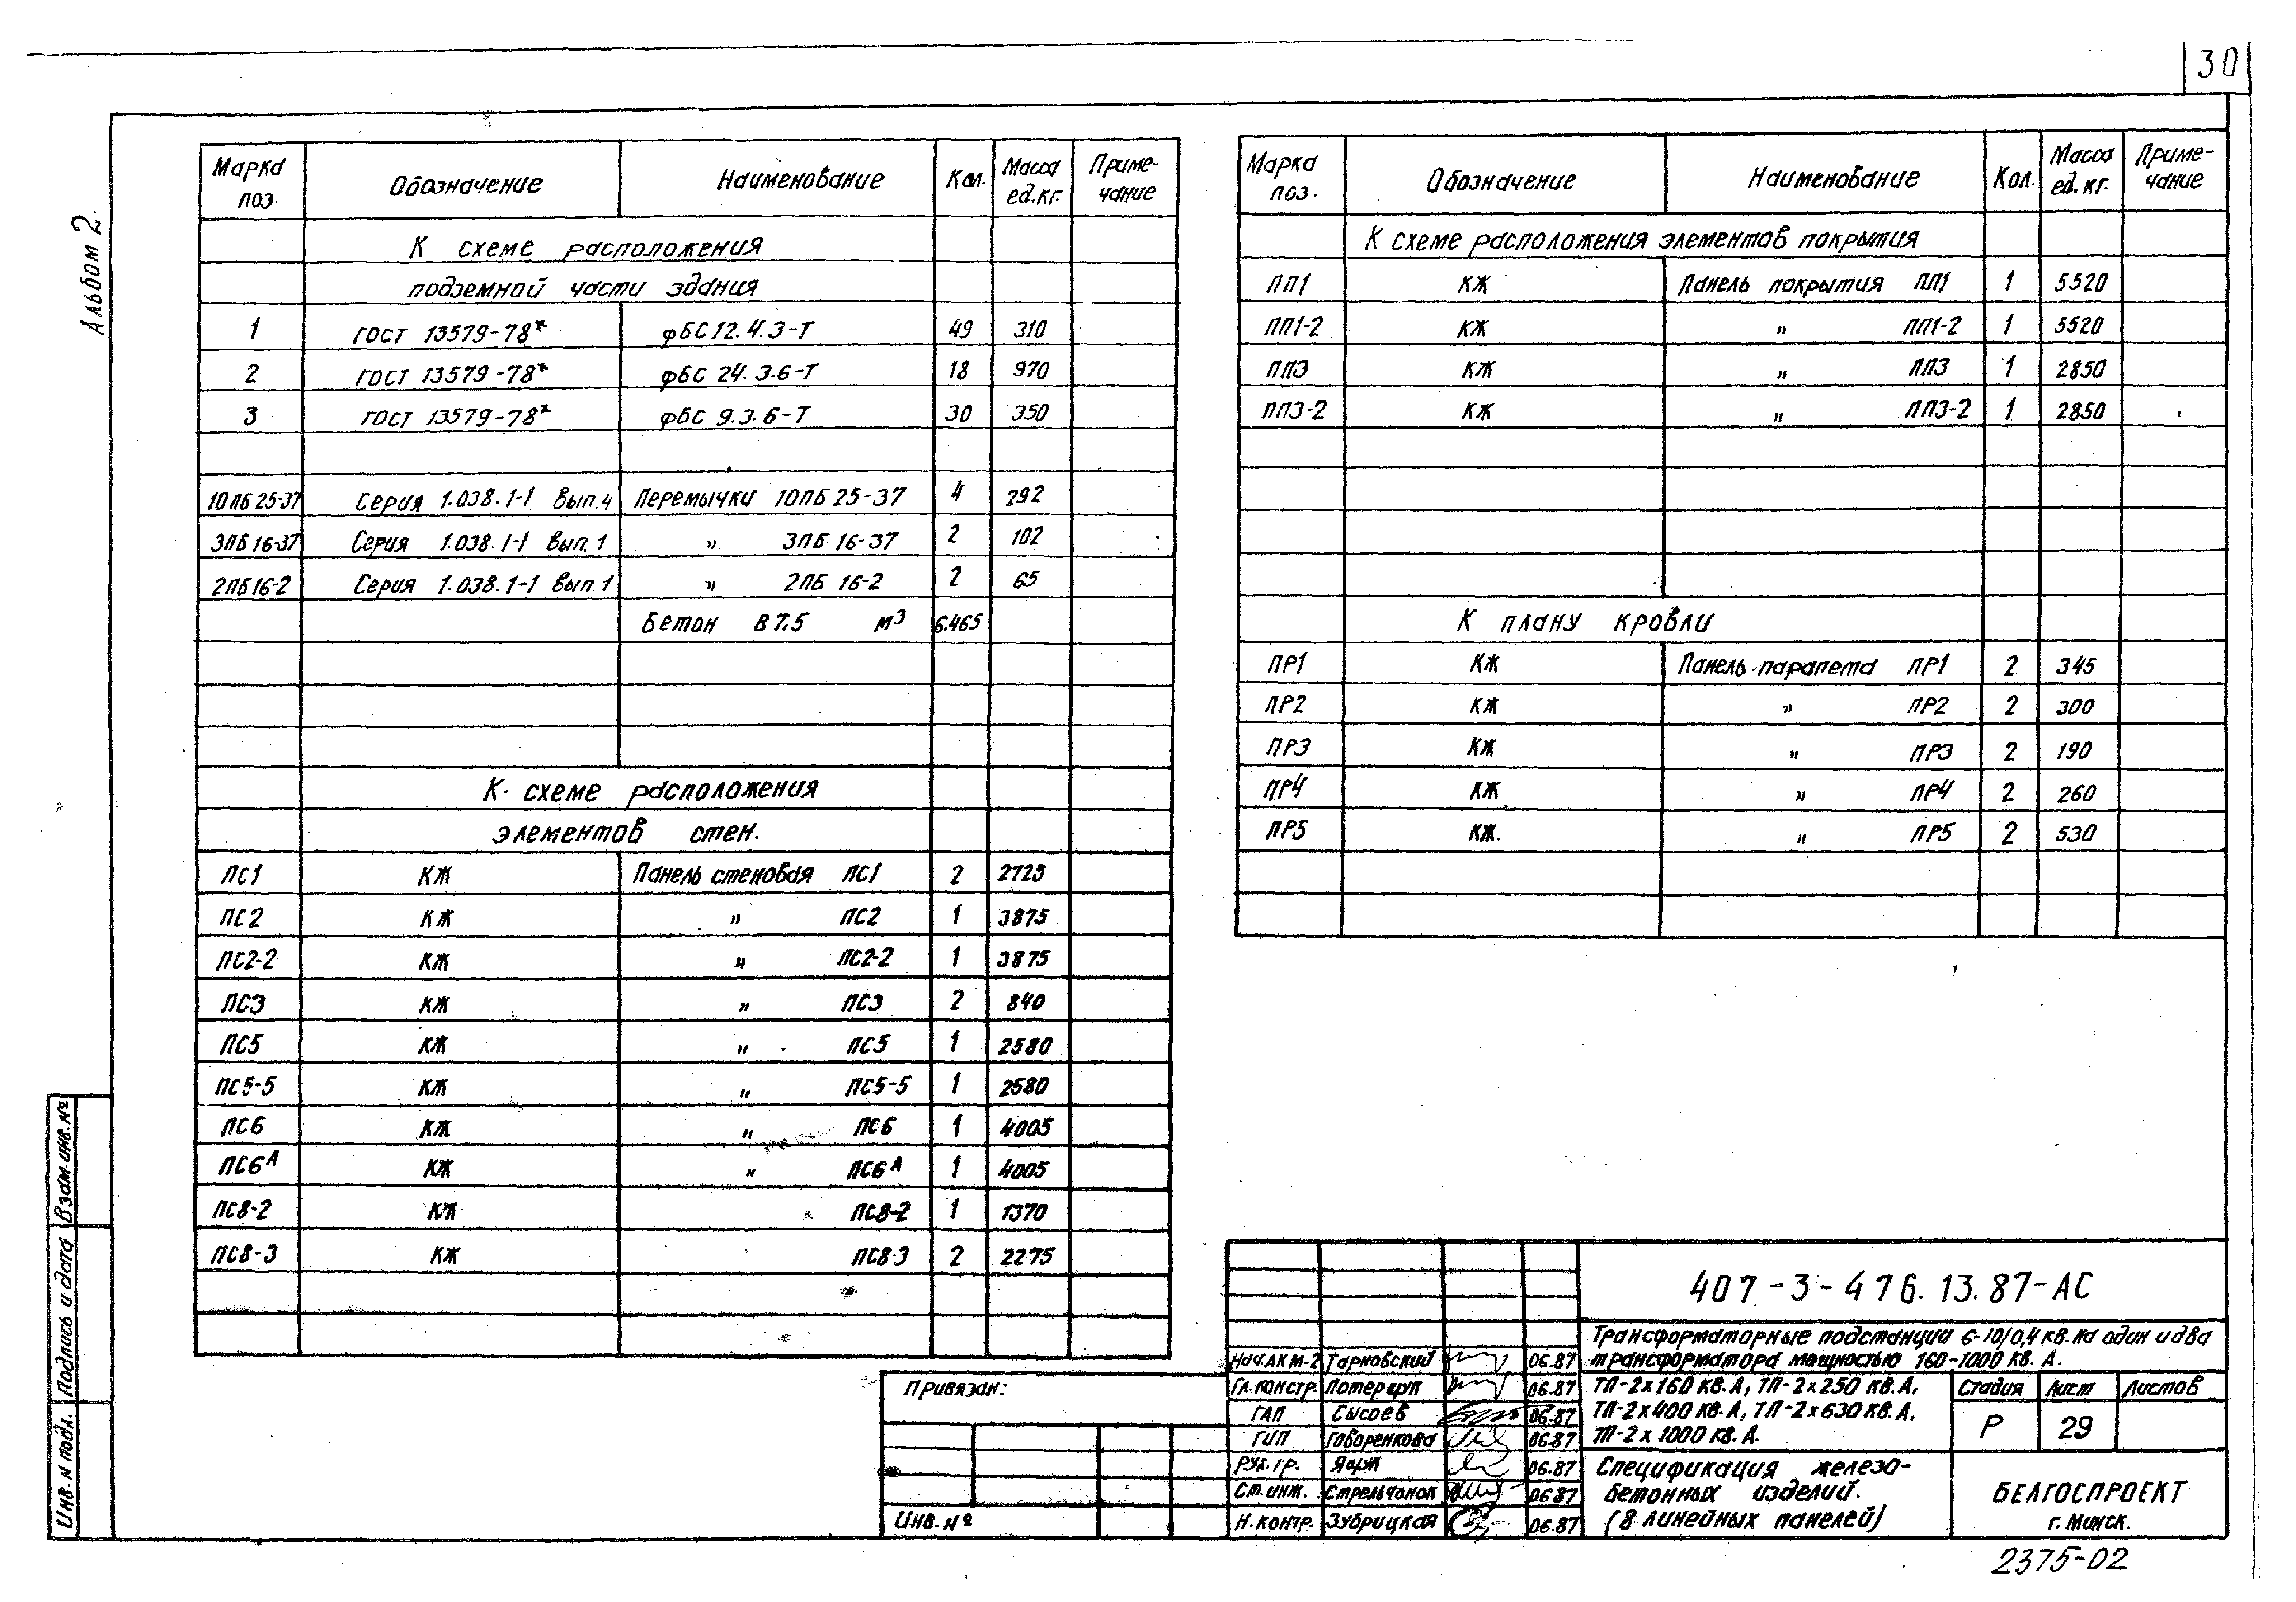 30
Альбом 2.
Марка поз. Обозначение Наименование Кол. Масса ед.кг. Примечание
К схеме расположения
подземной части здания
1 ГОСТ 13579-78* ФБС 12.4.3-Т 49 310
2 ГОСТ 13579-78* ФБС 24.3.6-Т 18 970
3 ГОСТ 13579-78* ФБС 9.3.6-Т 30 350
10ПБ 25-37 Серия 1.038.1-1 Вып.4 Перемычки 10ПБ 25-37 4 292
3ПБ 16-37 Серия 1.038.1-1 Вып.1 " 3ПБ 16-37 2 102
2ПБ 16-2 Серия 1.038.1-1 Вып.1 " 2ПБ 16-2 2 65
Бетон В 7.5 м³ 6.465
К схеме расположения
элементов стен.
ПС1 КЖ Панель стеновая ПС1 2 2725
ПС2 КЖ " ПС2 1 3875
ПС2-2 КЖ " ПС2-2 1 3875
ПС3 КЖ " ПС3 2 840
ПС5 КЖ " ПС5 1 2580
ПС5-5 КЖ " ПС5-5 1 2580
ПС6 КЖ " ПС6 1 4005
ПС6А КЖ " ПС6А 1 4005
ПС8-2 КЖ ПС8-2 1 1370
ПС8-3 КЖ ПС8-3 2 2275
Марка поз. Обозначение Наименование Кол. Масса ед.кг. Примечание
К схеме расположения элементов покрытия
ПП1 КЖ Панель покрытия ПП1 1 5520
ПП1-2 КЖ " ПП1-2 1 5520
ПП3 КЖ " ПП3 1 2850
ПП3-2 КЖ " ПП3-2 1 2850
К плану кровли
ПР1 КЖ Панель парапета ПР1 2 345
ПР2 КЖ " ПР2 2 300
ПР3 КЖ " ПР3 2 190
ПР4 КЖ " ПР4 2 260
ПР5 КЖ. " ПР5 2 530
Взам. инв. №
Подпись и дата
Инв. N подл.
Привязан:
Инв. №
407-3-476.13.87-АС
Трансформаторные подстанции 6-10/0,4 кв. на один и два
трансформатора мощностью 160-1000 кв. А.
ТП-2х160 кв.А, ТП-2х250 кв.А,
ТП-2х400 кв.А, ТП-2х630 кв.А.
ТП-2х1000 кв.А.
Стадия Лист Листов
Р 29
Нач.АКМ-2 Тарновский 06.87
Гл.констр. 06.87
ГАП Сысоев 06.87
ГИП Говоренкова 06.87
Рук.гр. 06.87
Ст.инж. Стрельчонок 06.87
Н.контр. Зубрицкая 06.87
Спецификация железо-
бетонных изделий.
(8 линейных панелей)
БЕЛГОСПРОЕКТ
г. Минск.
2375-02